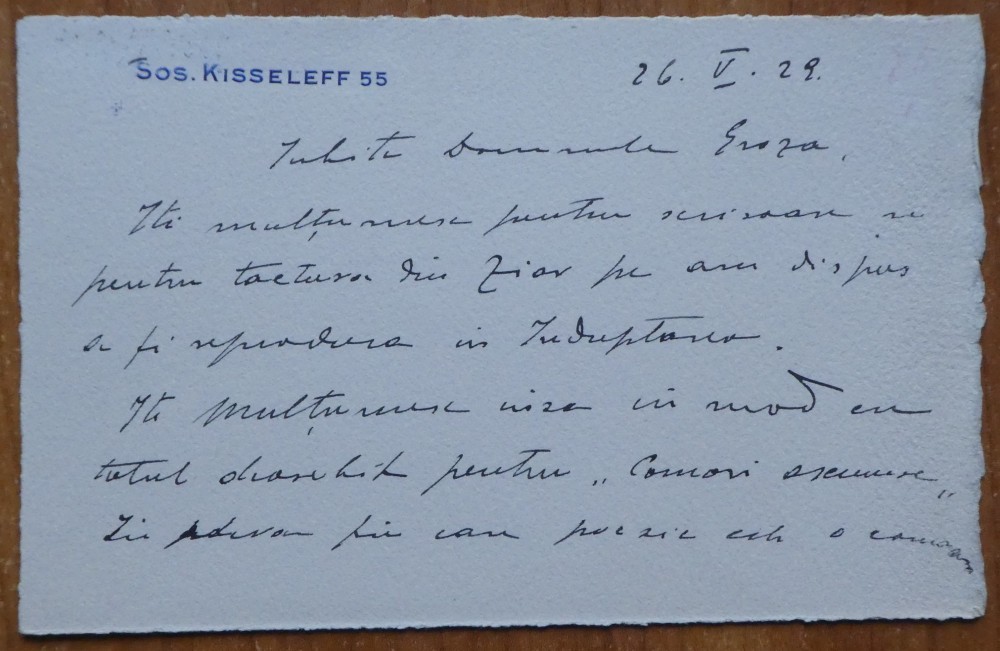 Sos. Kisseleff 55
26. V. 29.
Iubite Domnule Groza,
Iti mulțumesc pentru scrisoare si
pentru din Ziar pe am dispus
a fi reprodusa in Indreptarea.
Iti mulțumesc insa in mod cu
totul deosebit pentru „Comori ascunse"
In adevar fie care poezie este o comoara